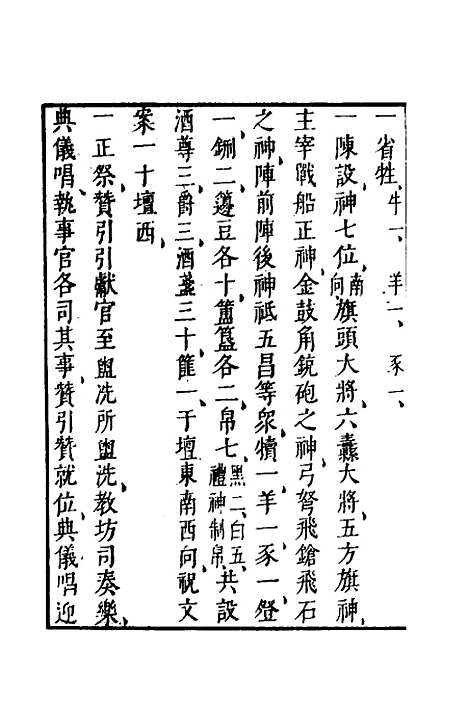 一省牲、牛一、羊一、豕一、
一陳設、神七位、南向、旗頭大將、六纛大將、五方旗神、
主宰戰船正神、金鼓角銃砲之神、弓弩飛鎗飛石
之神、陣前陣後神祗五昌等衆、犢一、羊一、豕一、登
一、鉶二、籩豆各十、簠簋各二、帛七、黑二、白五、禮神制帛、共設
酒尊三、爵三、酒盞三十、篚一、于壇東南西向、祝文
案一于壇西、
一正祭、贊引引獻官至盥洗所盥洗、教坊司奏樂、
典儀唱、執事官各司其事、贊引贊就位、典儀唱迎